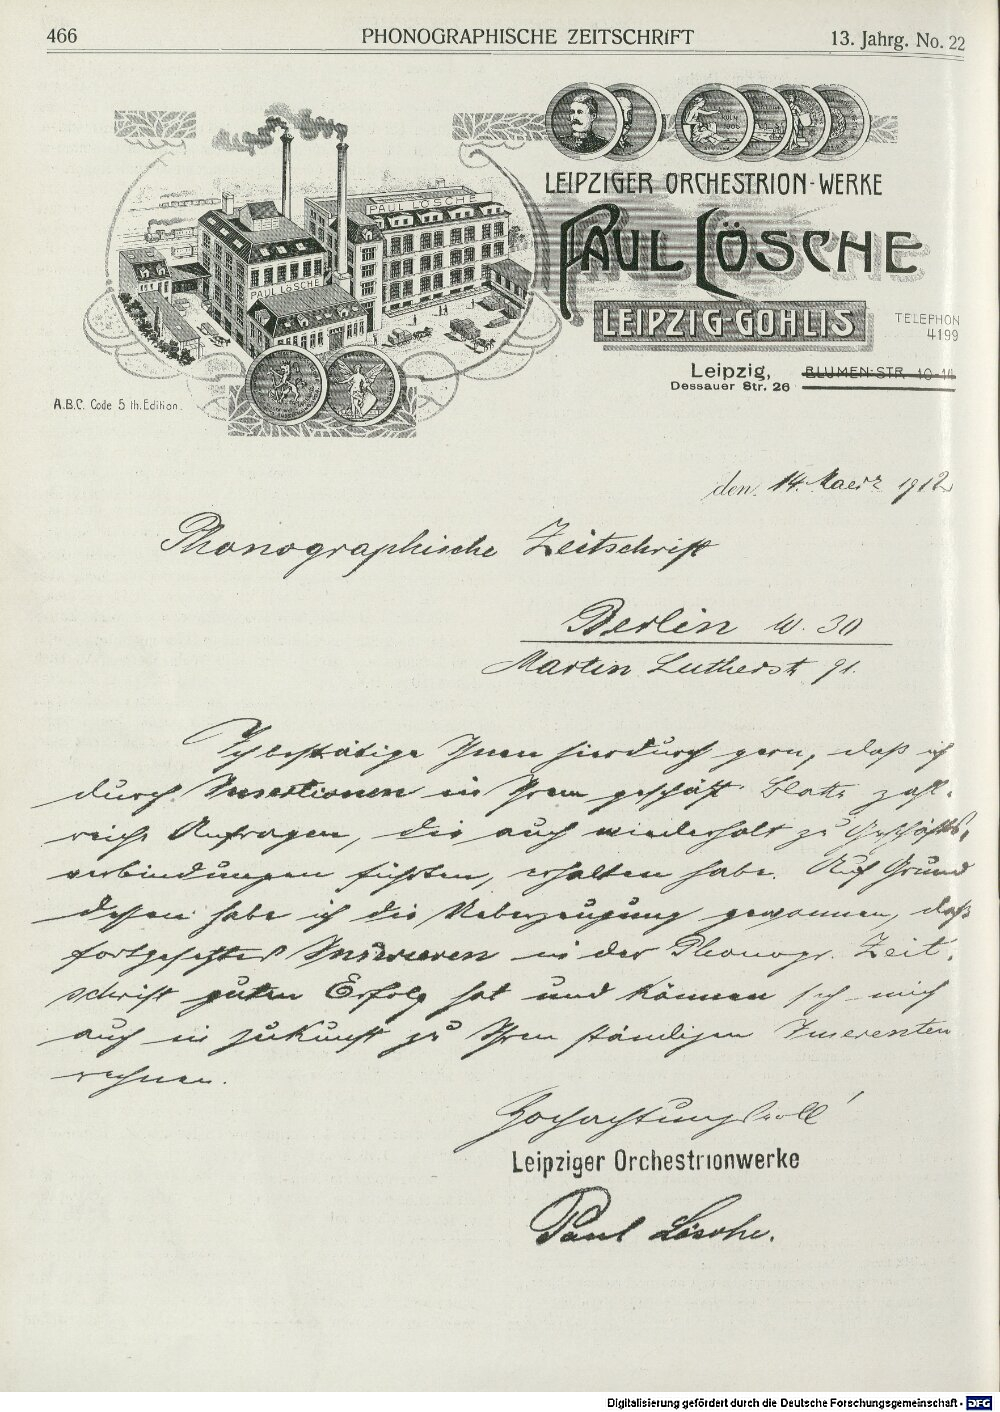 466 PHONOGRAPHISCHE ZEITSCHRIFT 13. Jahrg. No. 22
LEIPZIGER ORCHESTRION-WERKE
PAUL LÖSCHE
PAUL LÖSCHE
PAUL LÖSCHE
LEIPZIG-GOHLIS
TELEPHON
4199
Leipzig, BLUMEN-STR. 10-14
Dessauer Str. 26
A.B.C. Code 5 th. Edition.
den 14. Maerz 1912
Phonographische Zeitschrift
Berlin W. 30
Martin Lutherstr. 91.
Ich bestätige Ihnen hierdurch gern, daß ich
durch Insertionen in Ihrem geschäft. Blatte zahl-
reiche Anfragen, die auch wiederholt zu Geschäfts-
verbindungen führten, erhalten habe. Auf Grund
dessen habe ich die Ueberzeugung gewonnen, daß
fortgesetztes Inserieren in der Phonogr. Zeit-
schrift guten Erfolg hat und können Sie mich
auch in Zukunft zu Ihren ständigen Inserenten
rechnen.
Hochachtungsvoll
Leipziger Orchestrionwerke
Paul Lösche.
Digitalisierung gefördert durch die Deutsche Forschungsgemeinschaft - DFG